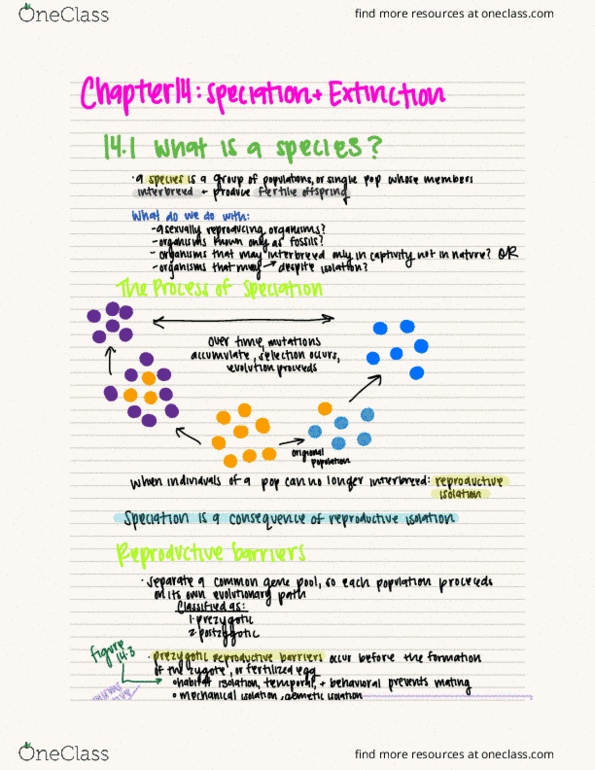 OneClass
find more resources at oneclass.com
Chapter 14: Speciation + Extinction
14.1 What is a species?
· a species is a group of populations, or single pop whose members
interbreed + produce fertile offspring
What do we do with:
- asexually reproducing organisms?
- organisms known only as fossils?
- organisms that may interbreed only in captivity not in nature? OR
- organisms that may → despite isolation?
The Process of Speciation
Over time, mutations
accumulate, selection occurs,
evolution proceeds
origional
population
When individuals of a pop can no longer interbreed: reproductive
isolation
Speciation is a consequence of reproductive isolation
Reproductive barriers
· separate a common gene pool, so each population proceeds
on its own evolutionary path
Classified as:
1. prezygotic
2. postzygotic
figure
14.3
· prezygotic reproductive barriers occur before the formation
of the zygote, or fertilized egg
• habitat isolation, temporal, + behavioral prevents mating
• mechanical isolation, gametic isolation
OneClass
find more resources at oneclass.com